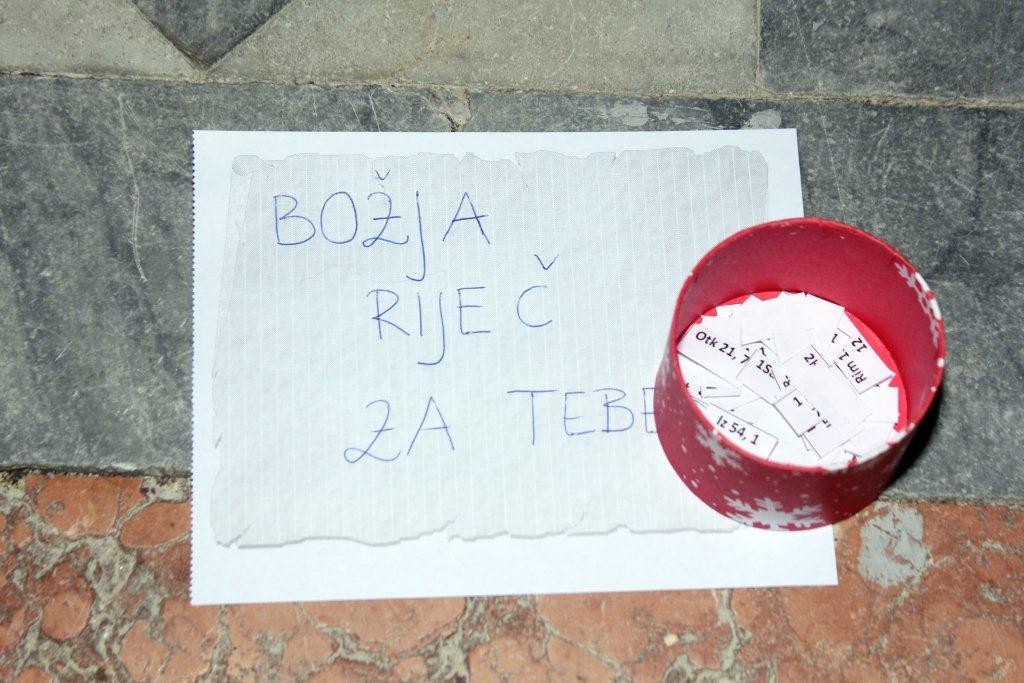 BOŽJA
RIJEČ
ZA TEBE
Otk 21, 7
Rim 1, 1
12
Iz 54, 1